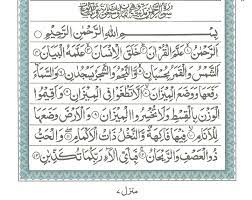 بِسْمِ اللهِ الرَّحْمٰنِ الرَّحِيْمِ
اَلرَّحْمٰنُ عَلَّمَ الْقُرْاٰنَ خَلَقَ الْاِنْسَانَ عَلَّمَهُ الْبَيَانَ
اَلشَّمْسُ وَالْقَمَرُ بِحُسْبَانٍ وَّالنَّجْمُ وَالشَّجَرُ يَسْجُدَانِ وَالسَّمَآءَ
رَفَعَهَا وَوَضَعَ الْمِيْزَانَ اَلَّا تَطْغَوْا فِى الْمِيْزَانِ وَاَقِيْمُوا
الْوَزْنَ بِالْقِسْطِ وَلَا تُخْسِرُوا الْمِيْزَانَ وَالْاَرْضَ وَضَعَهَا
لِلْاَنَامِ فِيْهَا فَاكِهَةٌ وَّالنَّخْلُ ذَاتُ الْاَكْمَامِ وَالْحَبُّ
ذُو الْعَصْفِ وَالرَّيْحَانُ فَبِاَىِّ اٰلَآءِ رَبِّكُمَا تُكَذِّبٰنِ
منزل ٧